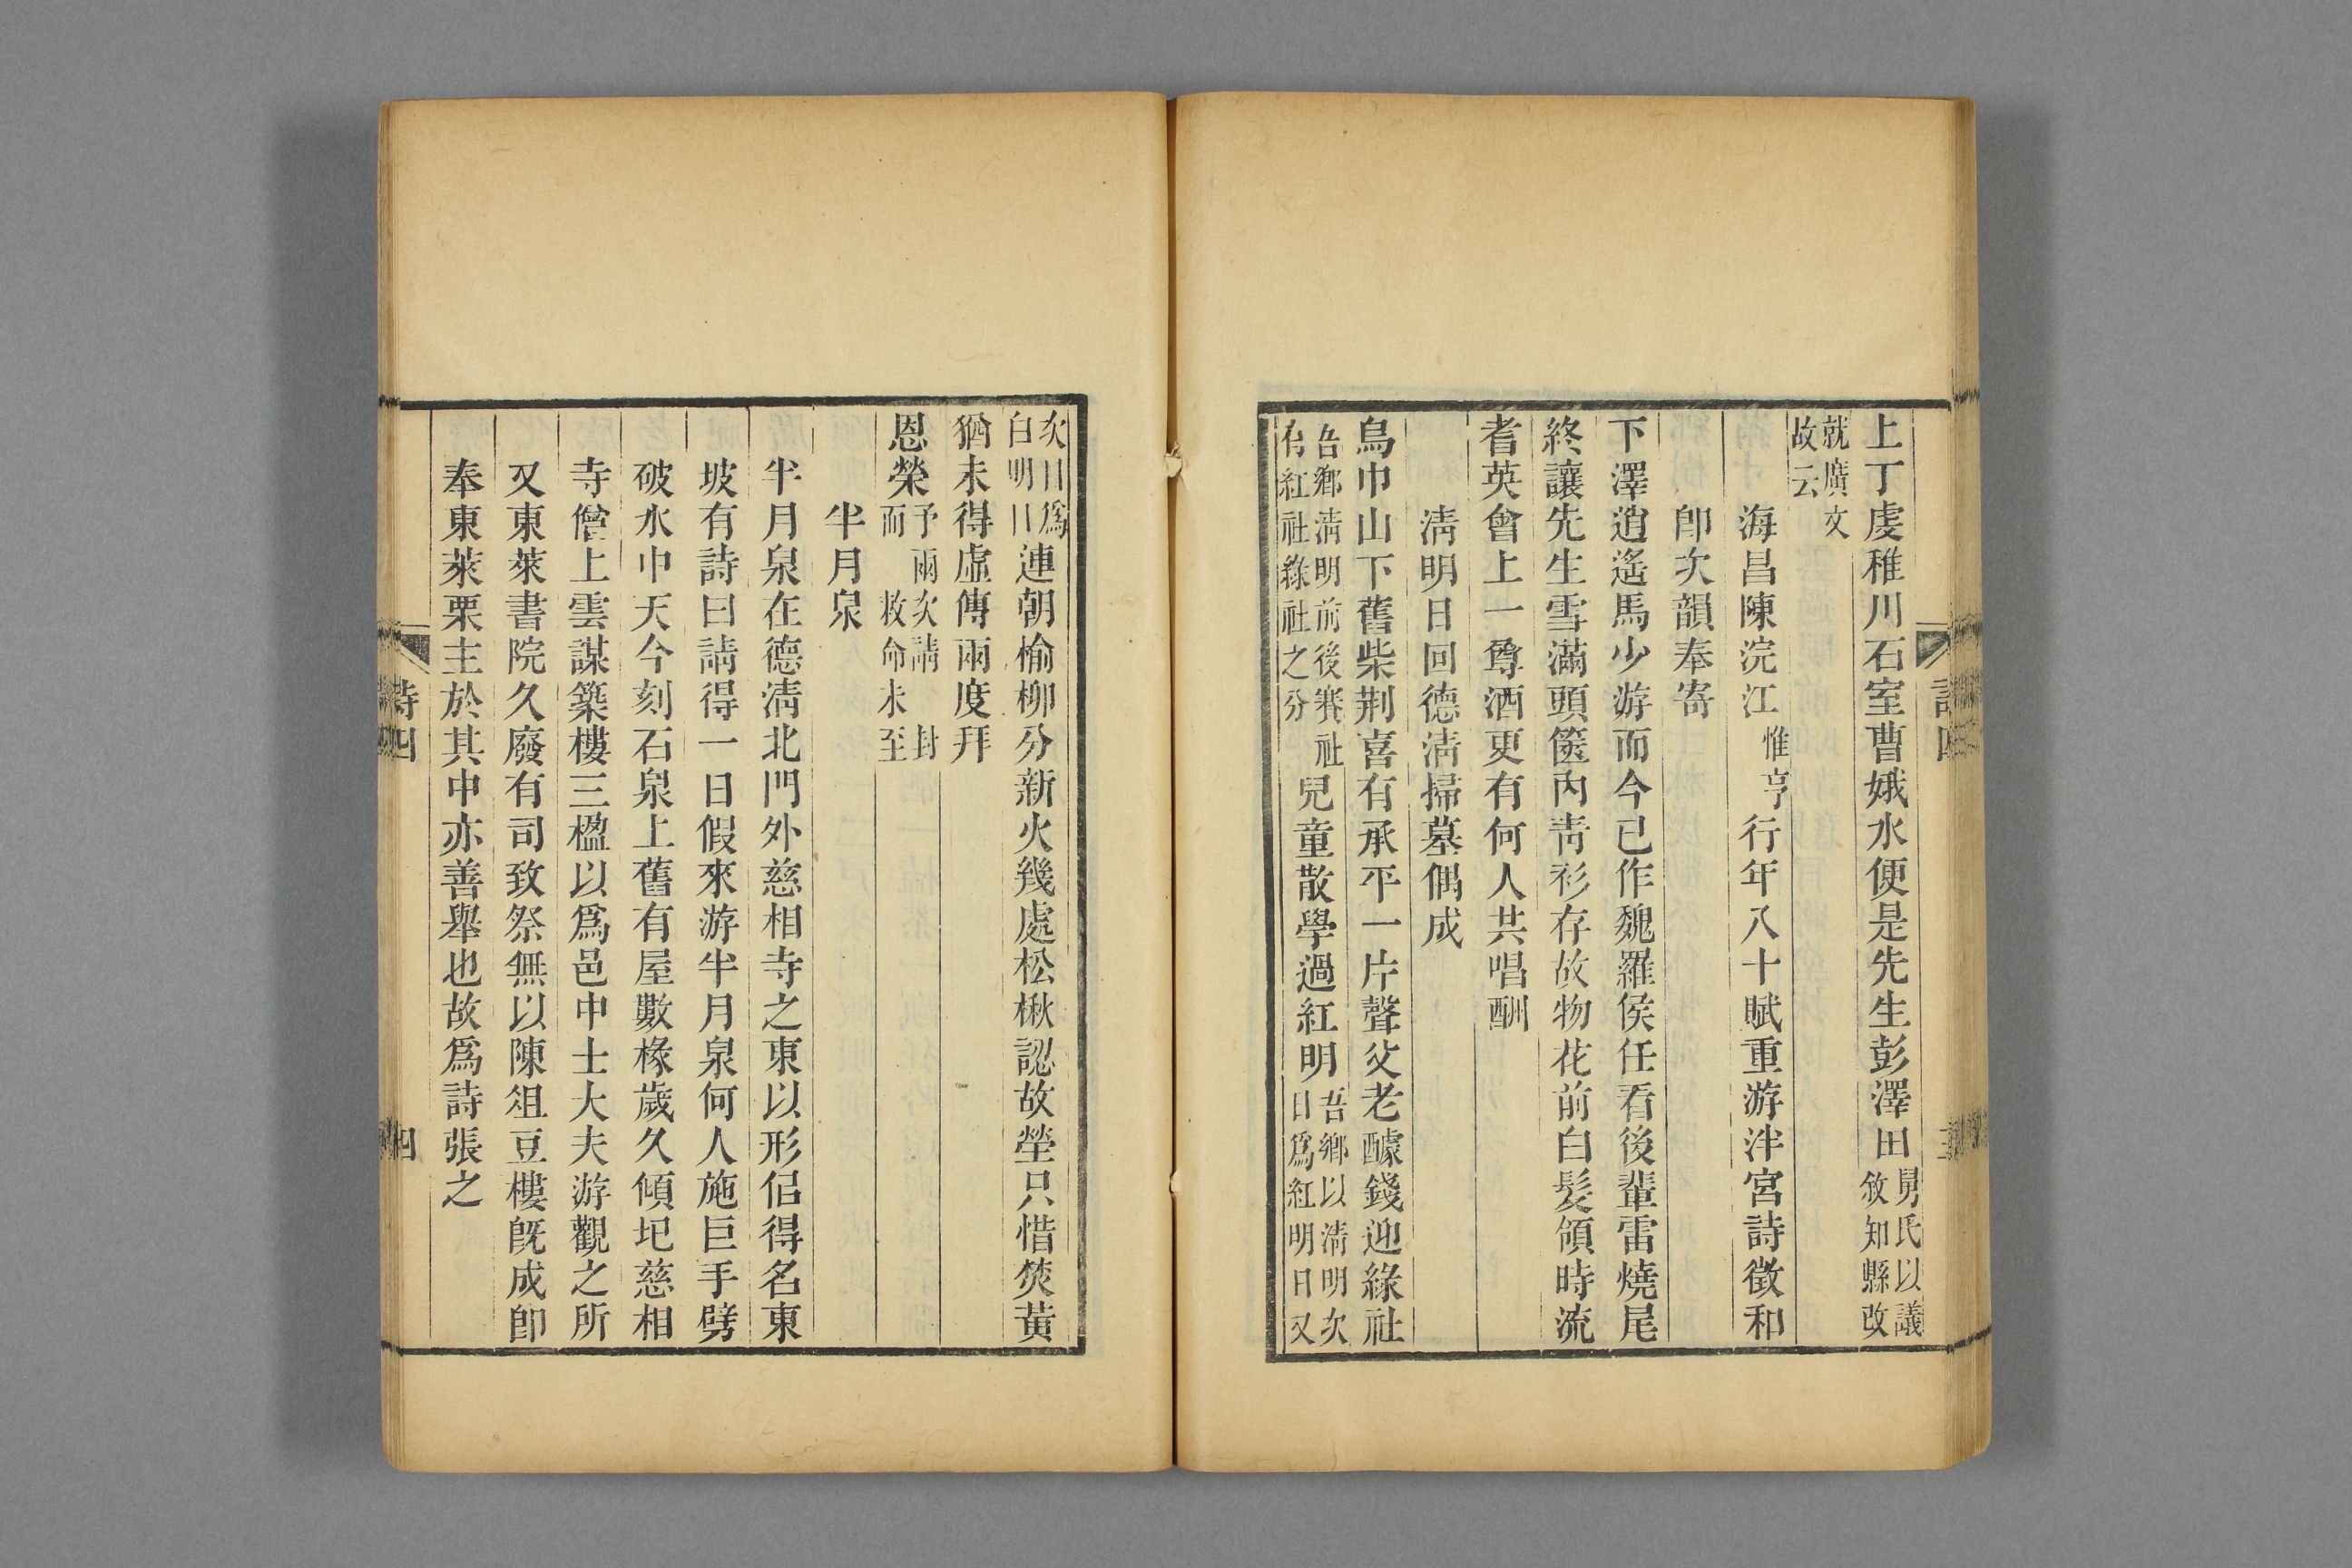 上丁虔稚川石室曹娥水便是先生彭澤田舅氏以議敘知縣改
就廣文故云
海昌陳浣江惟亨行年八十賦重游泮宮詩徵和
卽次韻奉寄
下澤逍遙馬少游而今已作魏羅侯任看後輩雷燒尾
終讓先生雪滿頭篋內靑衫存故物花前白髮領時流
耆英會上一尊酒更有何人共唱酬
淸明日回德淸掃墓偶成
烏巾山下舊柴荆喜有承平一片聲父老醵錢迎綠社
吾鄉淸明前後賽社有紅社綠社之分兒童散學過紅明吾鄉以淸明次日爲紅明日又
次日爲白明日連朝榆柳分新火幾處松楸認故塋只惜焚黃
猶未得虛傳兩度拜
恩榮予兩次請封而救命未至
半月泉
半月泉在德淸北門外慈相寺之東以形侣得名東
坡有詩曰請得一日假來游半月泉何人施巨手劈
破水中天今刻石泉上舊有屋數椽歲久傾圮慈相
寺僧上雲謀築樓三楹以爲邑中士大夫游觀之所
又東萊書院久廢有司致祭無以陳俎豆樓旣成卽
奉東萊栗主於其中亦善舉也故爲詩張之
詩四
四